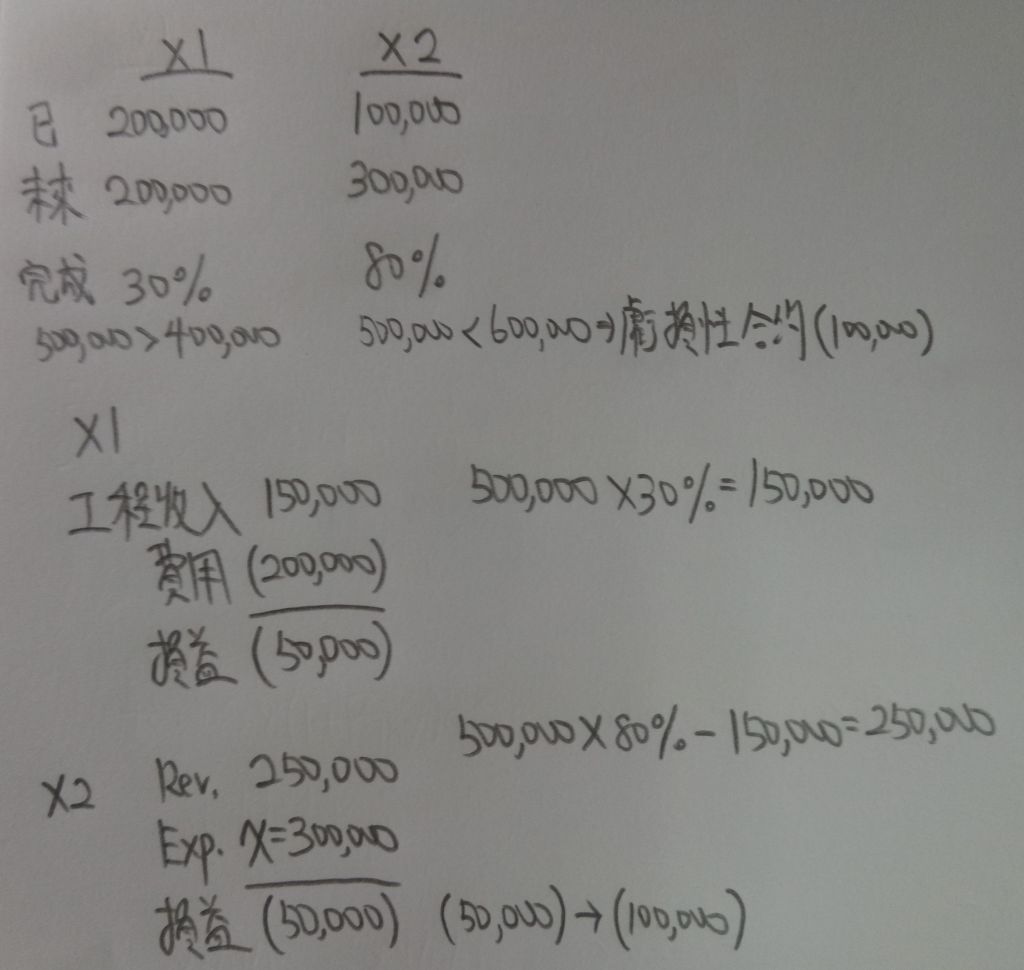 X1 X2
已 200,000 100,000
未来 200,000 300,000
完成 30% 80%
500,000>400,000 500,000<600,000⇒虧損性合約(100,000)
X1
工程收入 150,000 500,000×30%=150,000
費用 (200,000)
損益 (50,000)
500,000×80%-150,000=250,000
X2 Rev. 250,000
Exp. X=300,000
損益 (50,000) (50,000)→(100,000)